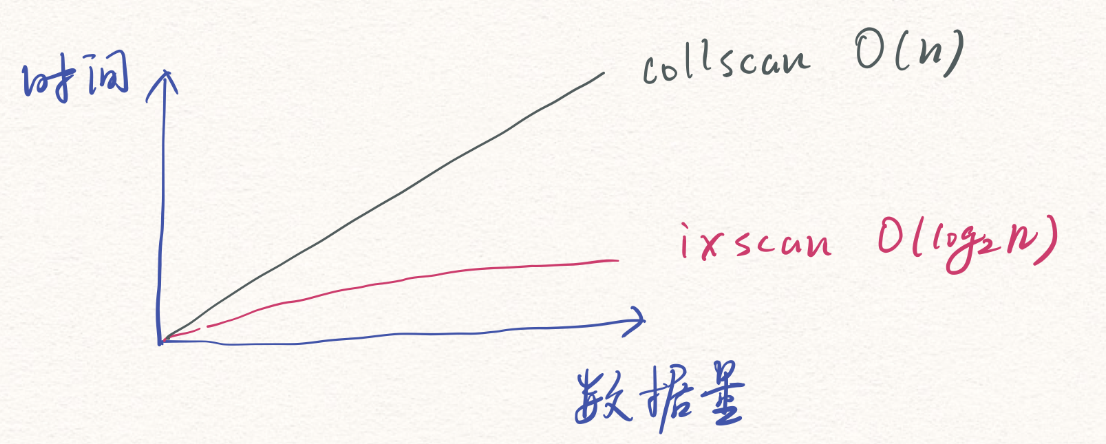 时间
collscan O(n)
ixscan O(log₂n)
数据量